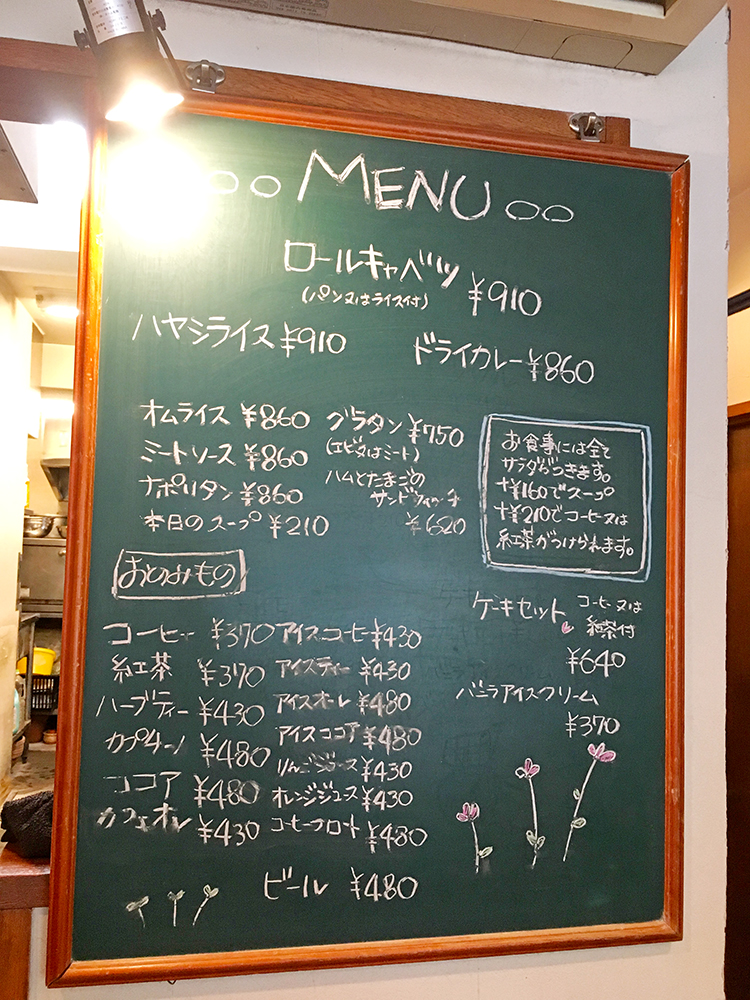 ○○ MENU ○○
ロールキャベツ ¥910
(パン又はライス付)
ハヤシライス ¥910
ドライカレー ¥860
オムライス ¥860
ミートソース ¥860
ナポリタン ¥860
本日のスープ ¥210
グラタン ¥750
(エビ又はミート)
ハムとたまごの
サンドウィッチ
¥620
お食事には全て
サラダがつきます。
+¥160でスープ
+¥210でコーヒー又は
紅茶がつけられます。
おのみもの
コーヒー ¥370
紅茶 ¥370
ハーブティー ¥430
カプチーノ ¥480
ココア ¥480
カフェオレ ¥430
アイスコーヒー ¥430
アイスティー ¥430
アイスオーレ ¥480
アイスココア ¥480
りんごジュース ¥430
オレンジジュース ¥430
コーヒーフロート ¥480
ビール ¥480
ケーキセット コーヒー又は
紅茶付
¥640
バニラアイスクリーム
¥370